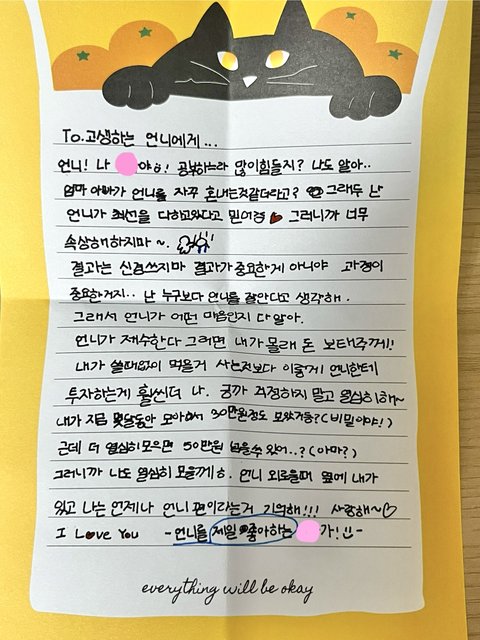 To. 고생하는 언니에게...
언니! 나 야! 공부하느라 많이힘들지? 나도 알아..
엄마 아빠가 언니를 자꾸 혼내는것같더라고? 그래두 난
언니가 최선을 다하고있다고 믿어 그러니까 너무
속상해하지마~.
결과는 신경쓰지마 결과가 중요한게 아니야 과정이
중요한거지.. 난 누구보다 언니를 잘안다고 생각해.
그래서 언니가 어떤 마음인지 다알아.
언니가 재수한다 그러면 내가 몰래 돈 보태주께!
내가 쓸때없이 먹을거 사는것보다 이렇게 언니한테
투자하는게 훨씬더 나. 긍까 걱정하지 말고 열심히해~
내가 지금 몇달동안 모아서 30만원정도 모았거등?(비밀이야!)
근데 더 열심히모으면 50만원 넘을수 있어..?(아마?)
그러니까 나도 열심히 모을께. 언니 외로울때 옆에 내가
있고 나는 언제나 언니 편이라는거 기억해!!! 사랑해~♡
I Love You -언니를 제일 좋아하는 가! -
everything will be okay